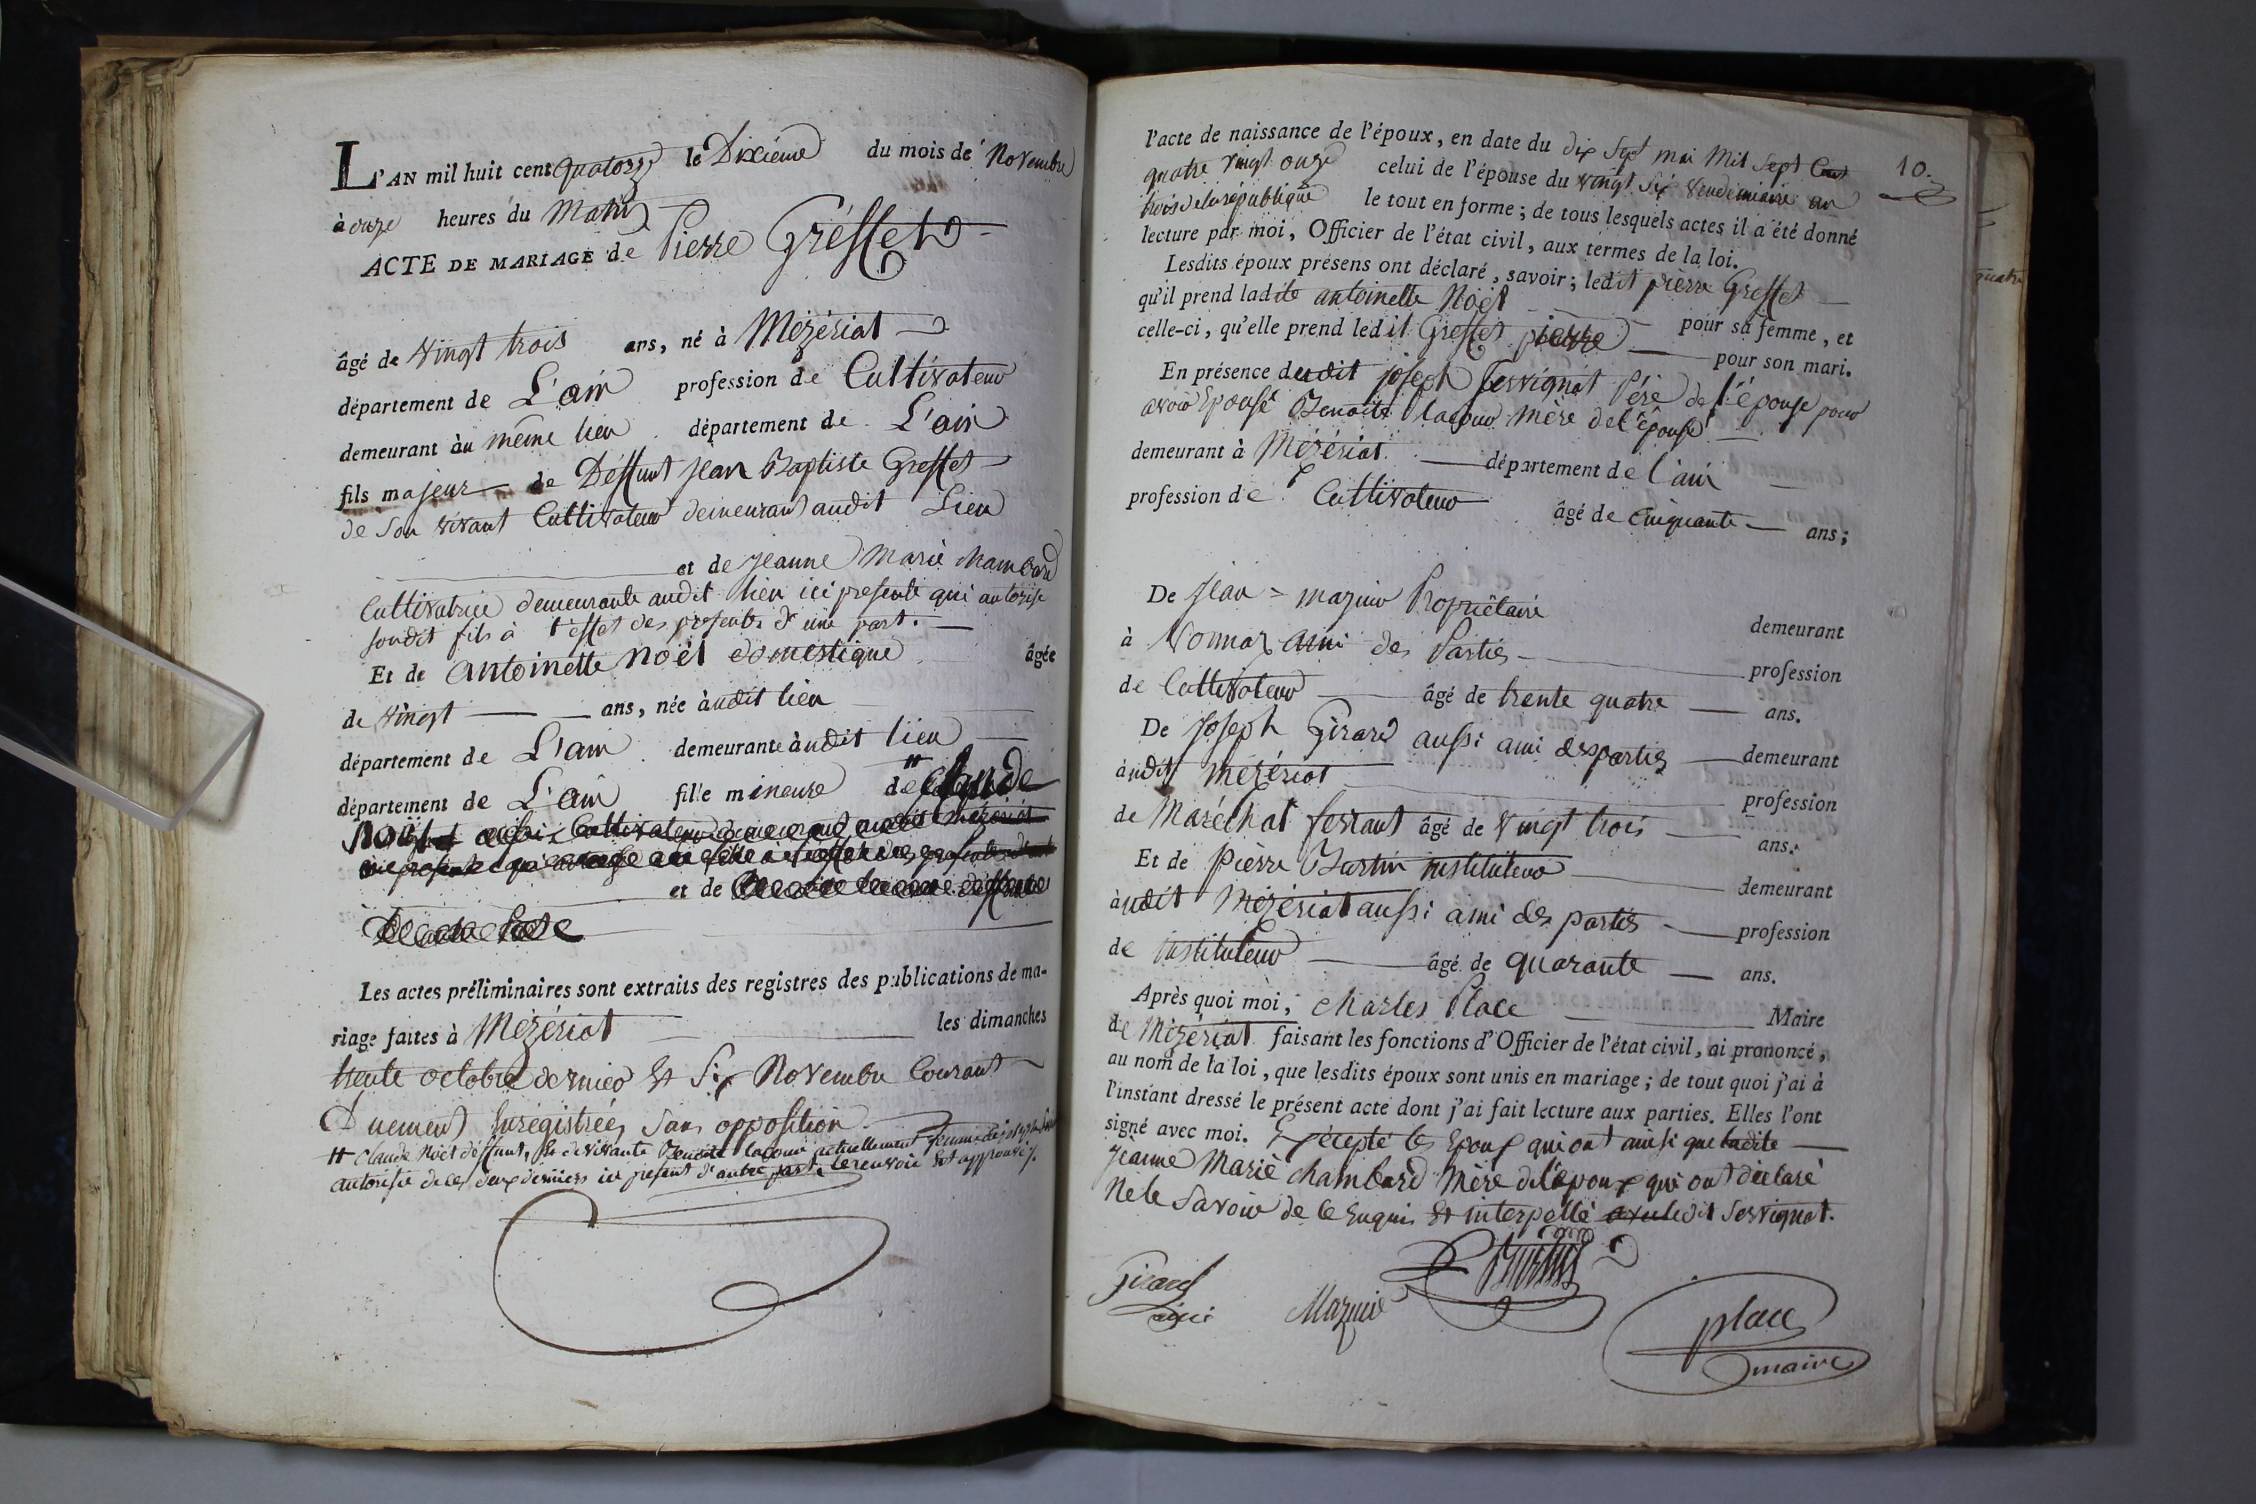 L'AN mil huit cent quatorze le Dixiéme du mois de Novembre
à onze heures du Matin
ACTE DE MARIAGE de Pierre Gréffet
âgé de vingt trois ans, né à Mézériat
département de L'ain profession de Cultivateur
demeurant au même lieu département de L'ain
fils majeur de Déffunt jean Baptiste Greffet
de Son vivant Cultivateur demeurant audit Lieu
et de jeanne Marie chambard
Cultivatrice demeurante audit lieu ici presente qui autorise
sondit fils à l'effet des presentes d'une part.
Et de antoinette Noël domestique âgée
de vingt ans, née àudit lieu
département de L'ain demeurante àudit lieu
département de L'ain fille mineure de # Claude
Noël cultivateur demeurant audit Mézériat
et de
Les actes préliminaires sont extraits des registres des publications de ma-
riage faites à Mézériat les dimanches
trente octobre dernier et Six Novembre Courant
Duement Enregistrées Sans opposition
# Claude Noël déffunt, et de vivante Benoite lacour actuellement femme de joseph
autorisée de ces deux derniers ici présent d'autre part, le renvoi est approuvé.
10.
l'acte de naissance de l'époux, en date du dix Sept mai Mil Sept Cent
quatre vingt onze celui de l'épouse du vingt Six vendemiaire an
trois de la république le tout en forme; de tous lesquels actes il a été donné
lecture par moi, Officier de l'état civil, aux termes de la loi.
Lesdits époux présens ont déclaré, savoir; ledit pierre Greffet
qu'il prend ladite antoinette Noël pour sa femme, et
celle-ci, qu'elle prend ledit Greffet pierre pour son mari.
En présence dudit joseph Servignat Péré de l'épouse pour
avoir Epousé Benoite lacour Mère de l'épouse
demeurant à Mézériat département de l'ain
profession de Cultivateur âgé de cinquante ans;
De jean = mazuir Propriétaire demeurant
à Vonnaz ami des Parties profession
de Cultivateur âgé de trente quatre ans.
De joseph Girard aussi ami des parties demeurant
àudit Mézériat profession
de Maréchal ferrant âgé de vingt trois ans.
Et de pierre instituteur demeurant
àudit Mézériat aussi ami des parties profession
de instituteur âgé de quarante ans.
Après quoi moi, charles Place Maire
de Mézériat faisant les fonctions d'Officier de l'état civil, ai prononcé,
au nom de la loi, que lesdits époux sont unis en mariage; de tout quoi j'ai à
l'instant dressé le présent acte dont j'ai fait lecture aux parties. Elles l'ont
signé avec moi. Excepté les Epoux qui ont ainsi que ladite
jeanne Marie chambard Mère de l'époux qui ont déclaré
Ne le Savoir de ce Enquis et interpellé ledit Servignat.
Girard
Mazuir
place
maire